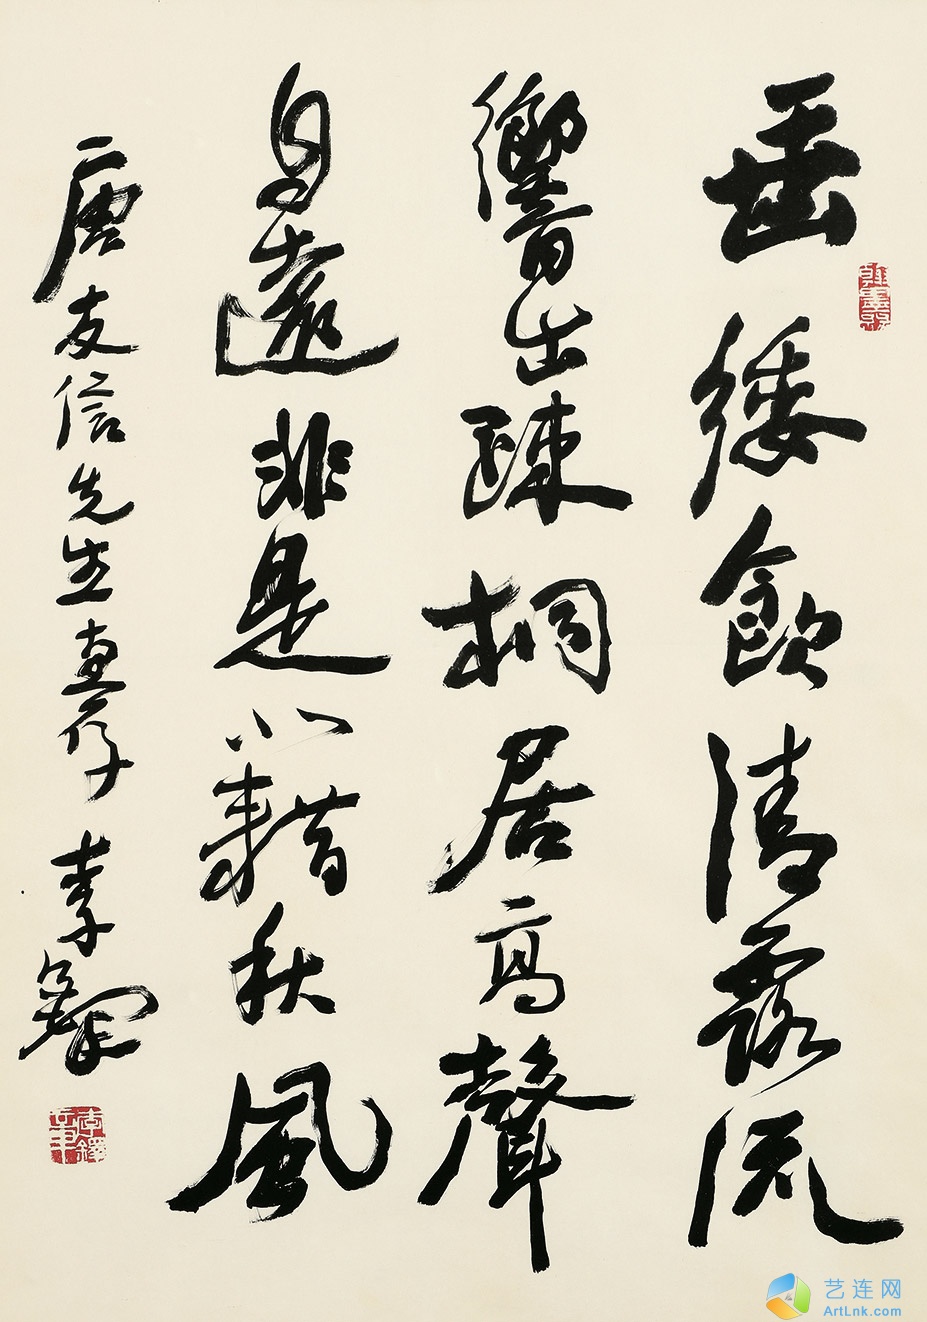 垂緌飲清露流
響出疎桐居高聲
自遠非是藉秋風
唐友信先生惠存 李鐸
艺连网
ArtLnk.com